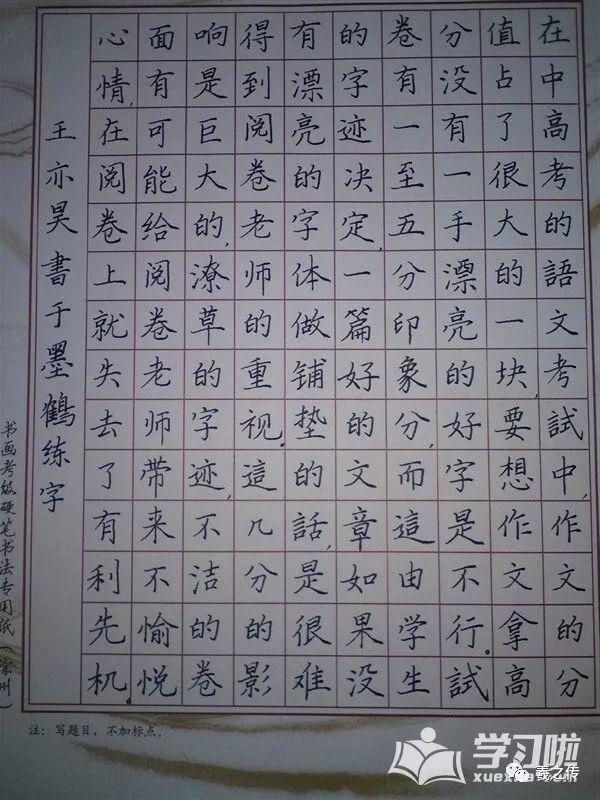 在中高考的語文考試中,作文的分
值占了很大的一块,要想作文拿高
分没有一手漂亮的好字是不行。試
卷有一至五分印象分,而這由学生
的字迹决定,一篇好的文章如果没
有漂亮的字体做铺垫的話,是很难
得到阅卷老师的重视。這几分的影
响是巨大的,潦草的字迹,不洁的卷
面有可能给阅卷老师带来不愉悦
心情,在阅卷上就失去了有利先机。
王亦昊書于墨鹤练字
书画考级硬笔书法专用纸
注：写题目，不加标点。
学习啦
羲之传